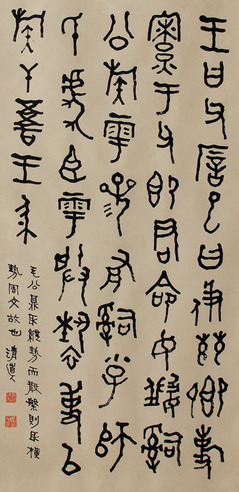 王曰父厝已曰彶茲卿事
寮于父即君命女𤔲
公族雩參有嗣小子師
氏虎臣雩朕褻事以
乃族干吾王身
毛公鼎取縱勢而散槃則取橫
勢文故也 清道人